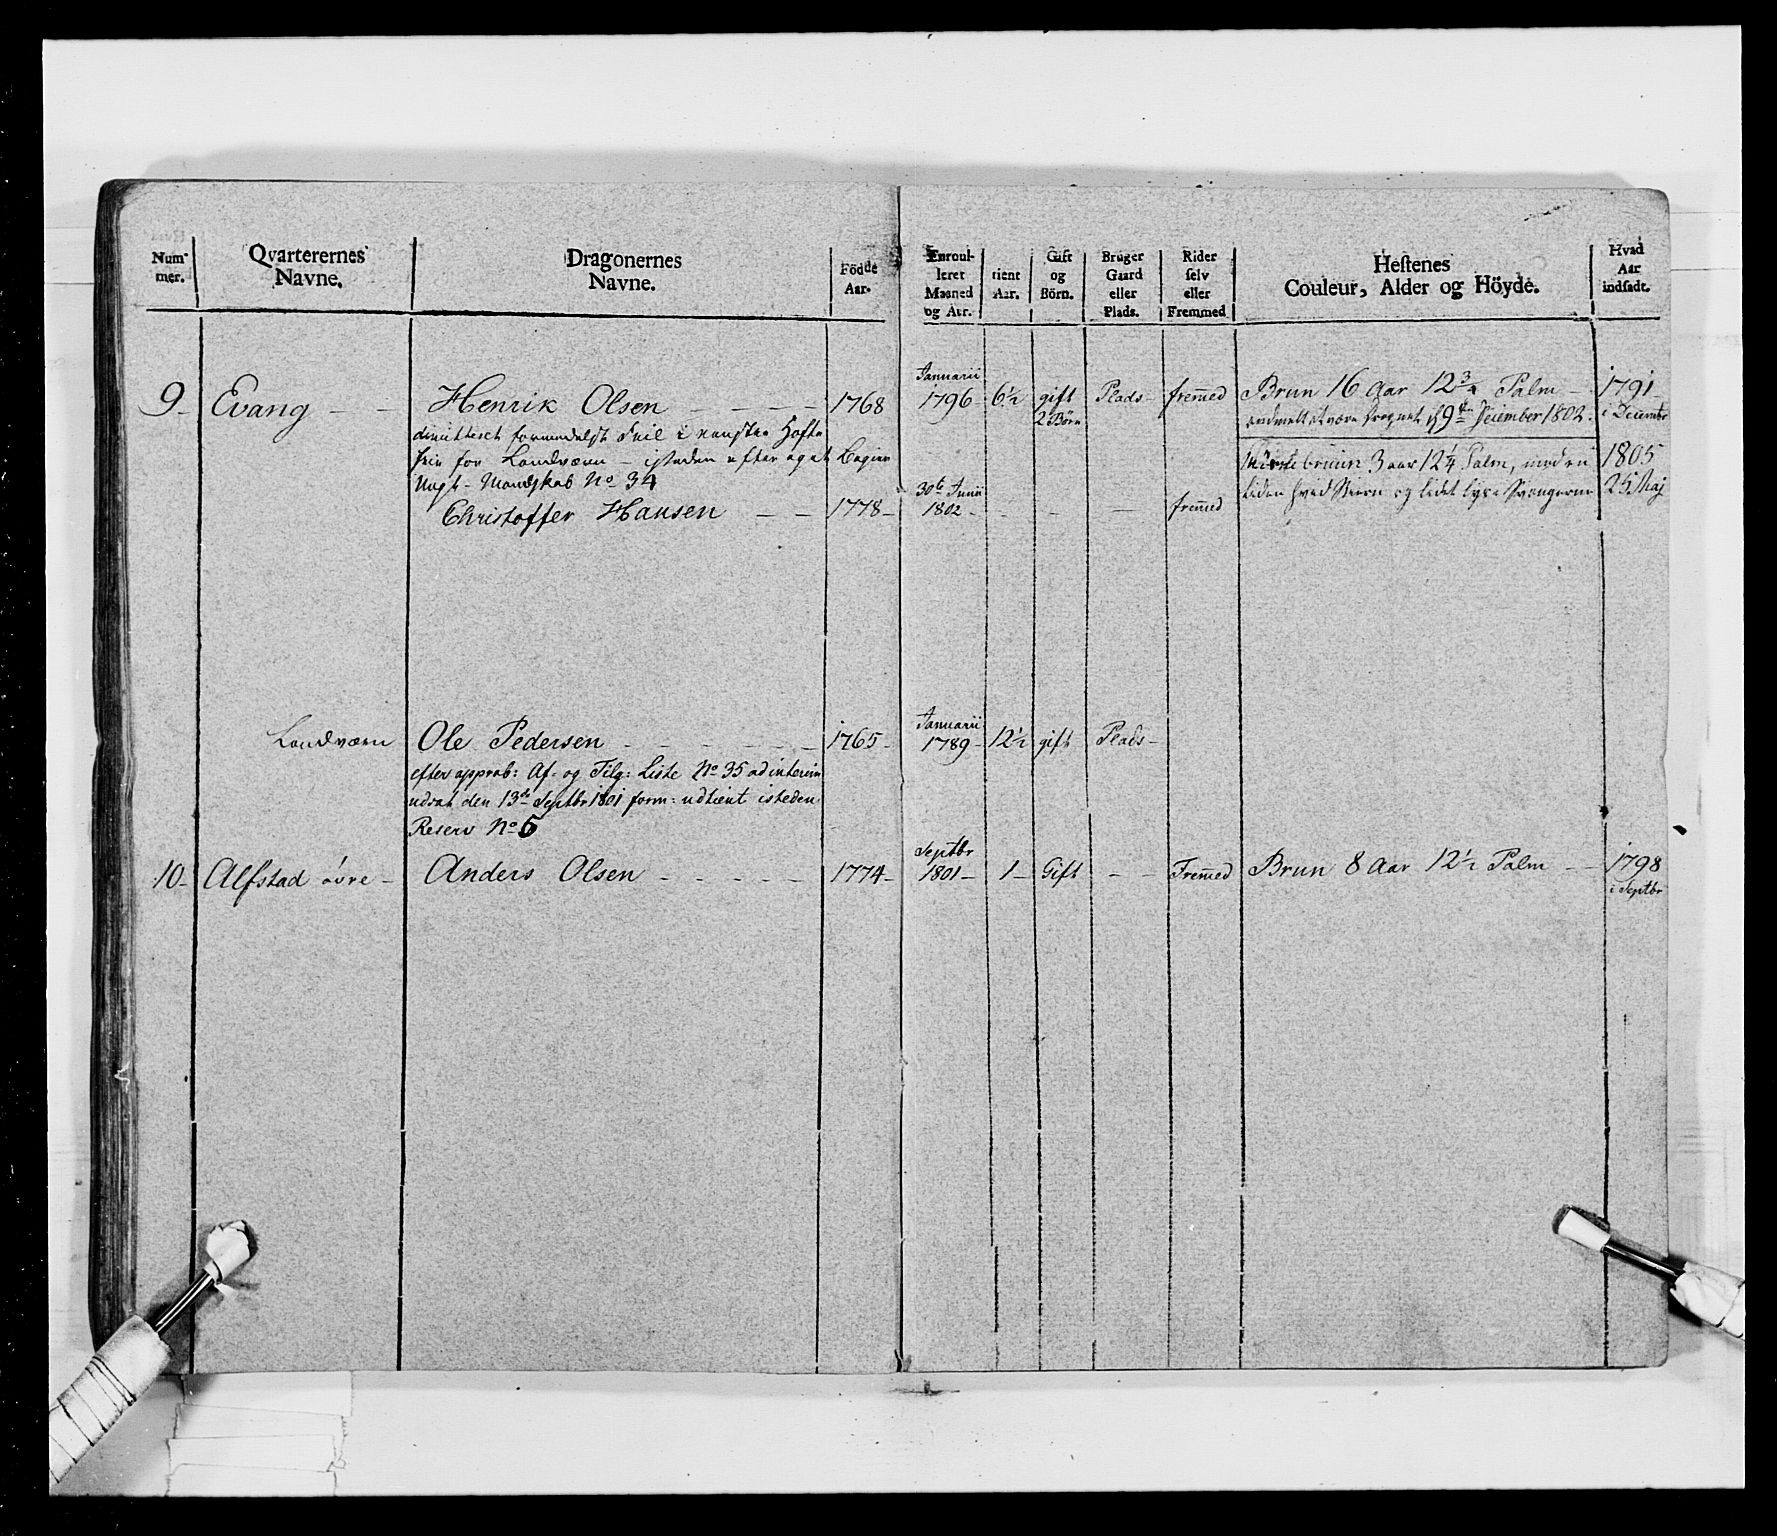 Num-
mer.
Qvarterernes
Navne.
Dragonernes
Navne.
Födde
Aar.
Enroul-
leret
Maaned
og Aar.
tient
Aar.
Gift
og
Börn.
Bruger
Gaard
eller
Plads.
Rider
selv
eller
Fremmed
Hestenes
Couleur, Alder og Höyde.
Hvad
Aar
indsadt.
9 Evang Henrik Olsen 1768 Januarii 1796 6½ gift 2 Börn Plads fremed Brun 16 Aar 12¾ Palm 1791 i Decembr
dimitteret formedelst Feil i venstre Hofte
frie for Landværn isteden efter eget Begier
Ungt Mandskab No 34
9de December 1802
bruun 3 aar 12¼ Palm, med en
liden hvid Stiern og lidet lyse
1805
25 Maj
Christoffer Hansen 1778 30te Junii 1802 fremed
Landværn Ole Pedersen 1765 Januarii 1789 12½ gift Plads
efter approb: Af- og Tilg: Liste No 35 ad interim
udsat den 13de Septbr 1801 form: udtient isteden
Reserv No 5
10 Alfstad övre Anders Olsen 1774 Septbr 1801 1 Gift Fremed Brun 8 Aar 12½ Palm 1798 i Septbr